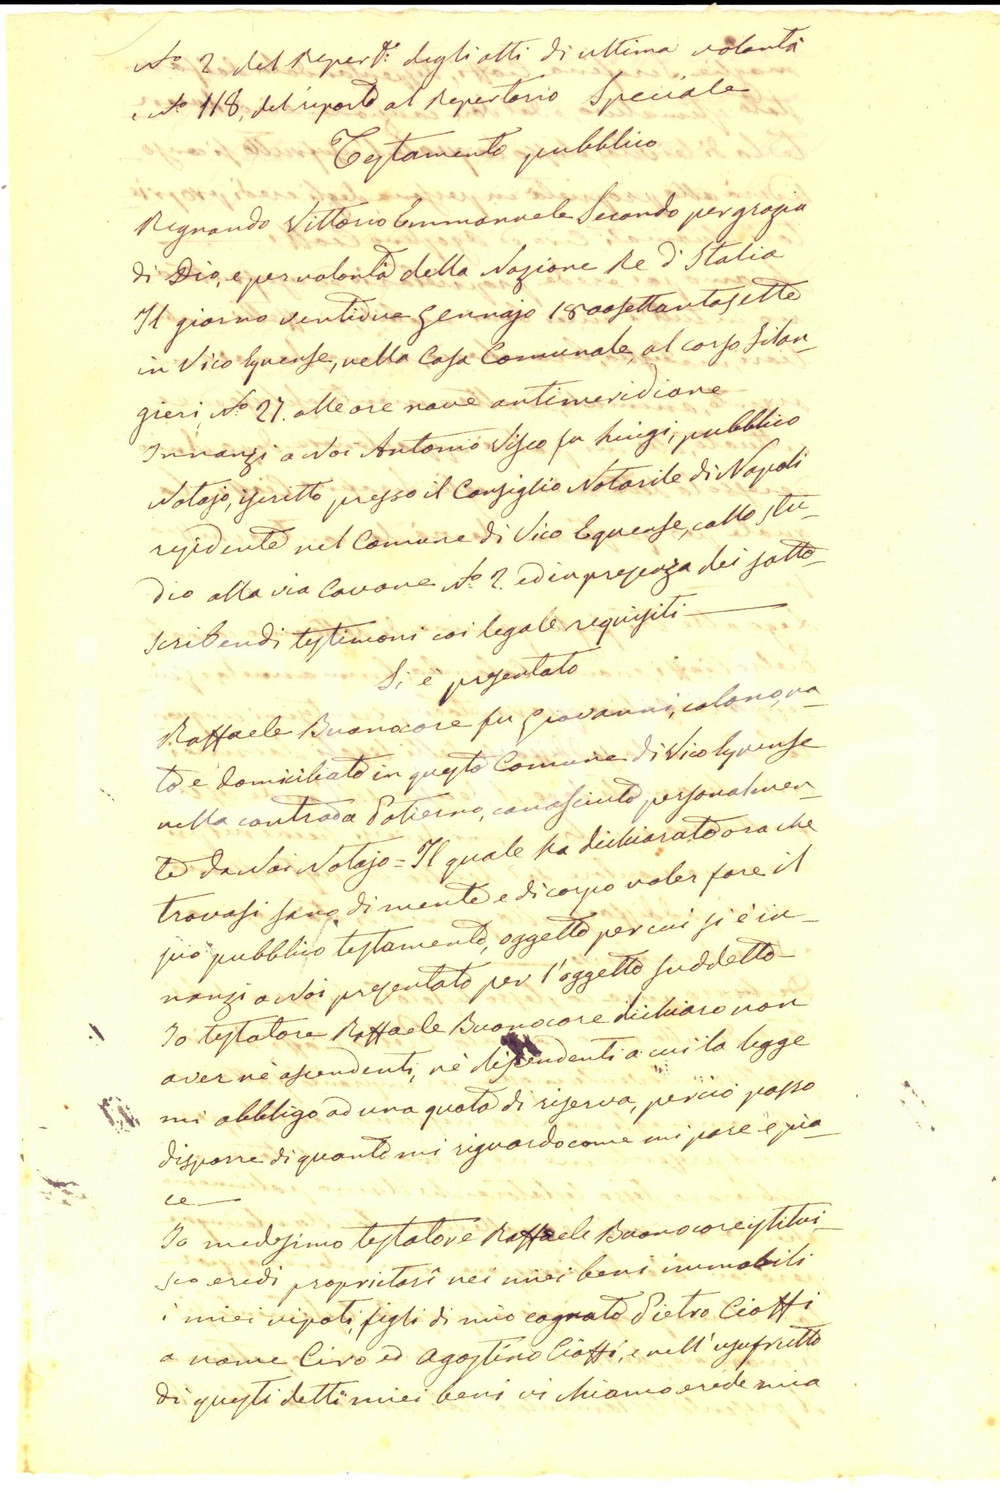 N.° 2 del Repert.° degli atti di ultima volontà
N.° 118, del riporto al Repertorio Speciale
Testamento pubblico
Regnando Vittorio Emmanuele Secondo per grazia
di Dio, e per volontà della Nazione Re d'Italia
Il giorno ventidue Gennajo 1800settantasette
in Vico Equense, nella Casa Comunale, al corso Filan-
gieri, N.° 27. alle ore nove antimeridiane
Innanzi a Noi Antonio Visco fu Luigi, pubblico
Notajo, iscritto presso il Consiglio Notarile di Napoli
residente nel Comune di Vico Equense, collo stu-
dio alla via Cavone N.° 2. ed in presenza dei sotto-
scribendi testimoni coi legale requisiti
Si è presentato
Raffaele Buonocore fu Giovanni, colono, na-
to e domiciliato in questo Comune di Vico Equense
nella contrada Patierno, conosciuto personalmen-
te da Noi Notajo = Il quale ha dichiarato ora che
trovasi sano di mente e di corpo voler fare il
suo pubblico testamento, oggetto per cui si è in-
nanzi a Noi presentato per l'oggetto suddetto
Io testatore Raffaele Buonocore dichiaro non
aver nè ascendenti, nè discendenti a cui la legge
mi obbliga ad una quota di riserva, perciò posso
disporre di quanto mi riguardo come mi pare e pia-
ce
Io medesimo testatore Raffaele Buonocore istitui-
sco eredi proprietarî nei miei beni immobili
i miei nipoti, figli di mio cognato Pietro Cioffi
a nome Ciro ed Agostino Cioffi, e nell'usufrutto
di questi detti miei beni vi chiamo erede mia